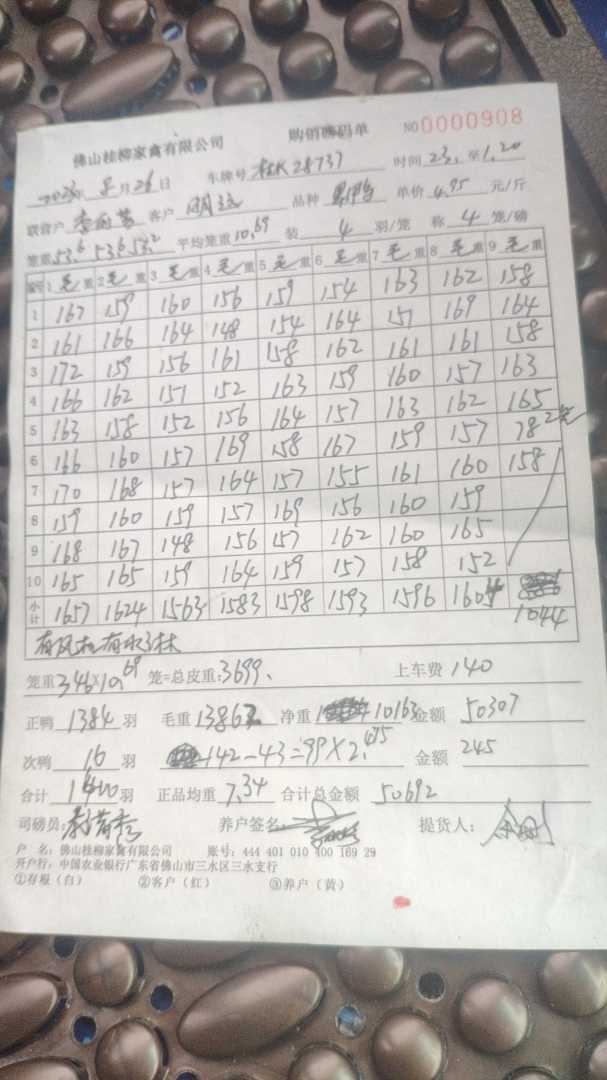 佛山桂柳家禽有限公司 购销磅码单 NO0000908
2023年8月26日 车牌号 28737 时间 23. 至1.20
联营户 客户 明远 品种 单价 4.95 元/斤
笼重53.6 53.6 53.2 平均笼重10.69 装 4 羽/笼 称 4 笼/磅
编号 1 毛重 2 毛重 3 毛重 4 毛重 5 毛重 6 毛重 7 毛重 8 毛重 9 毛重
1 167 159 160 156 159 154 163 162 158
2 161 166 164 148 154 164 157 169 164
3 172 159 156 161 158 162 161 161 158
4 166 162 157 152 163 159 160 157 163
5 163 158 152 156 164 157 163 162 165
6 166 160 157 169 158 167 159 157 78 2笼
7 170 168 157 164 157 155 161 160 158
8 159 160 159 157 169 156 160 159
9 168 167 148 156 157 162 160 165
10 165 165 159 164 159 157 158 152
小计 1657 1624 1563 1583 1598 1593 1596 1604 1044
有风机有水3林
笼重346×10.69 笼=总皮重:3699. 上车费 140
正鸭 1384 羽 毛重13862 净重 10163 金额 50307
次鸭 16 羽 142-43=99×2.475 金额 245
合计 1400 羽 正品均重 7.34 合计总金额 50692
司磅员: 养户签名: 提货人:
户 名: 佛山桂柳家禽有限公司 账号: 444 401 010 400 169 29
开户行: 中国农业银行广东省佛山市三水区三水支行
①存根（白） ②客户（红） ③养户（黄）